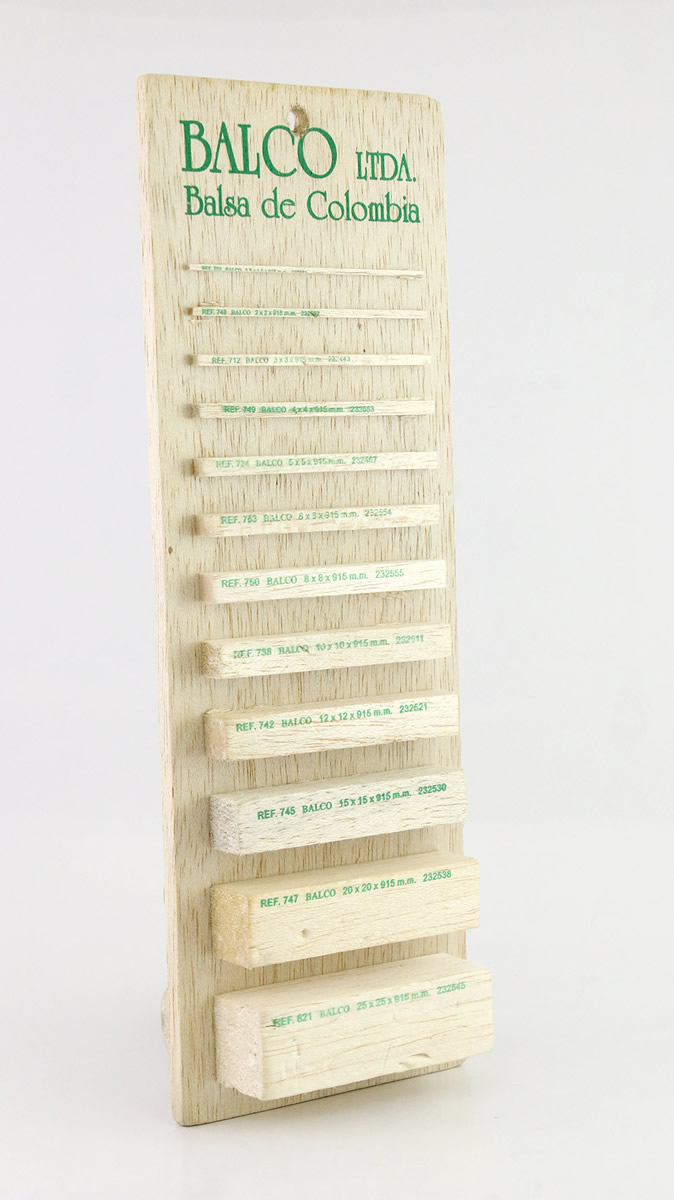 BALCO LTDA.
Balsa de Colombia
BALCO
REF. 748 BALCO 2 x 2 x 915 m.m.
REF. 712 BALCO 3 x 3 x 915 m.m.
REF. 749 BALCO 4 x 4 x 915 m.m. 232553
REF. 724 BALCO 5 x 5 x 915 m.m. 232467
REF. 753 BALCO x 915 m.m. 232554
REF. 750 BALCO 8 x 8 x 915 m.m. 232555
REF. 738 BALCO 10 x 10 x 915 m.m. 232511
REF. 742 BALCO 12 x 12 x 915 m.m. 232521
REF. 745 BALCO 15 x 15 x 915 m.m. 232530
REF. 747 BALCO 20 x 20 x 915 m.m. 232538
REF. 821 BALCO 25 x 25 x 915 m.m. 232545